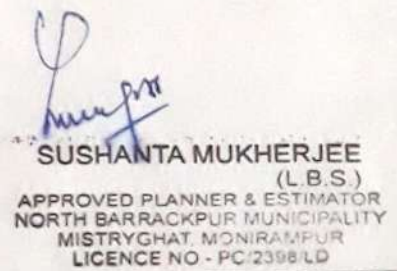 SUSHANTA MUKHERJEE
(L.B.S.)
APPROVED PLANNER & ESTIMATOR
NORTH BARRACKPUR MUNICIPALITY
MISTRYGHAT, MONIRAMPUR
LICENCE NO - PC/2398/LD